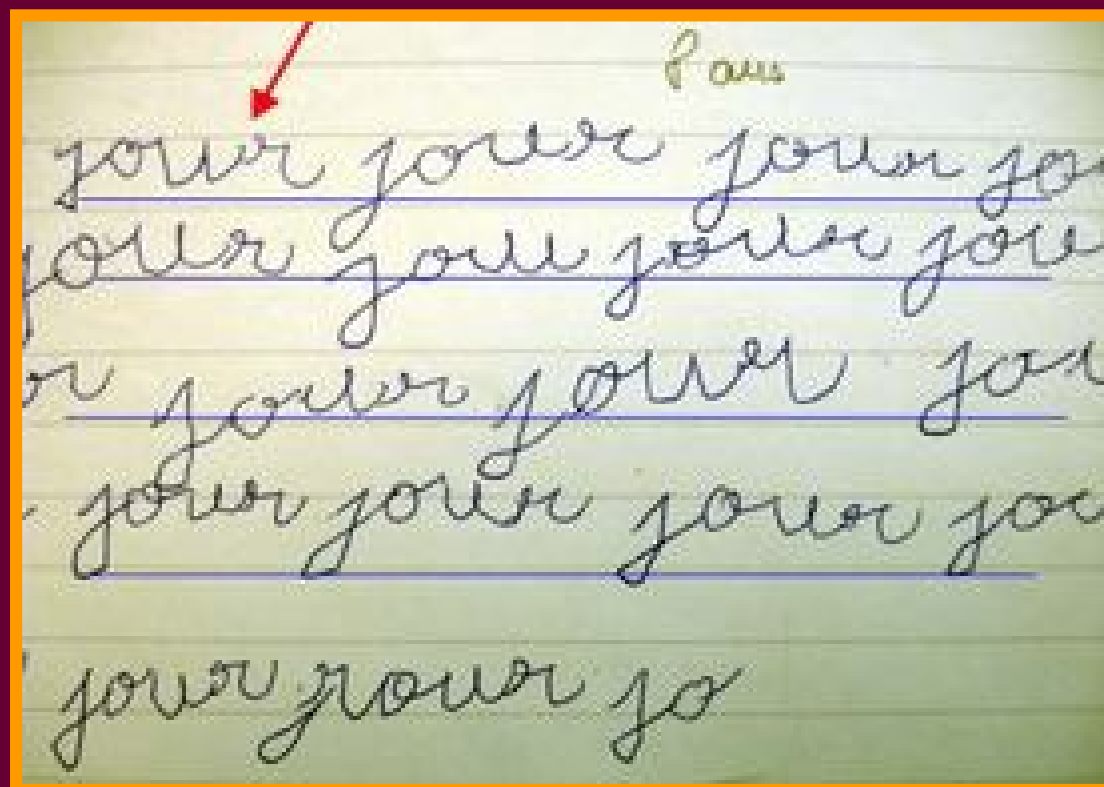 8 ans
jour jour jour jou
jour jou jour jou
or jour jour jou
jour jour jour jou
jour jrour jo